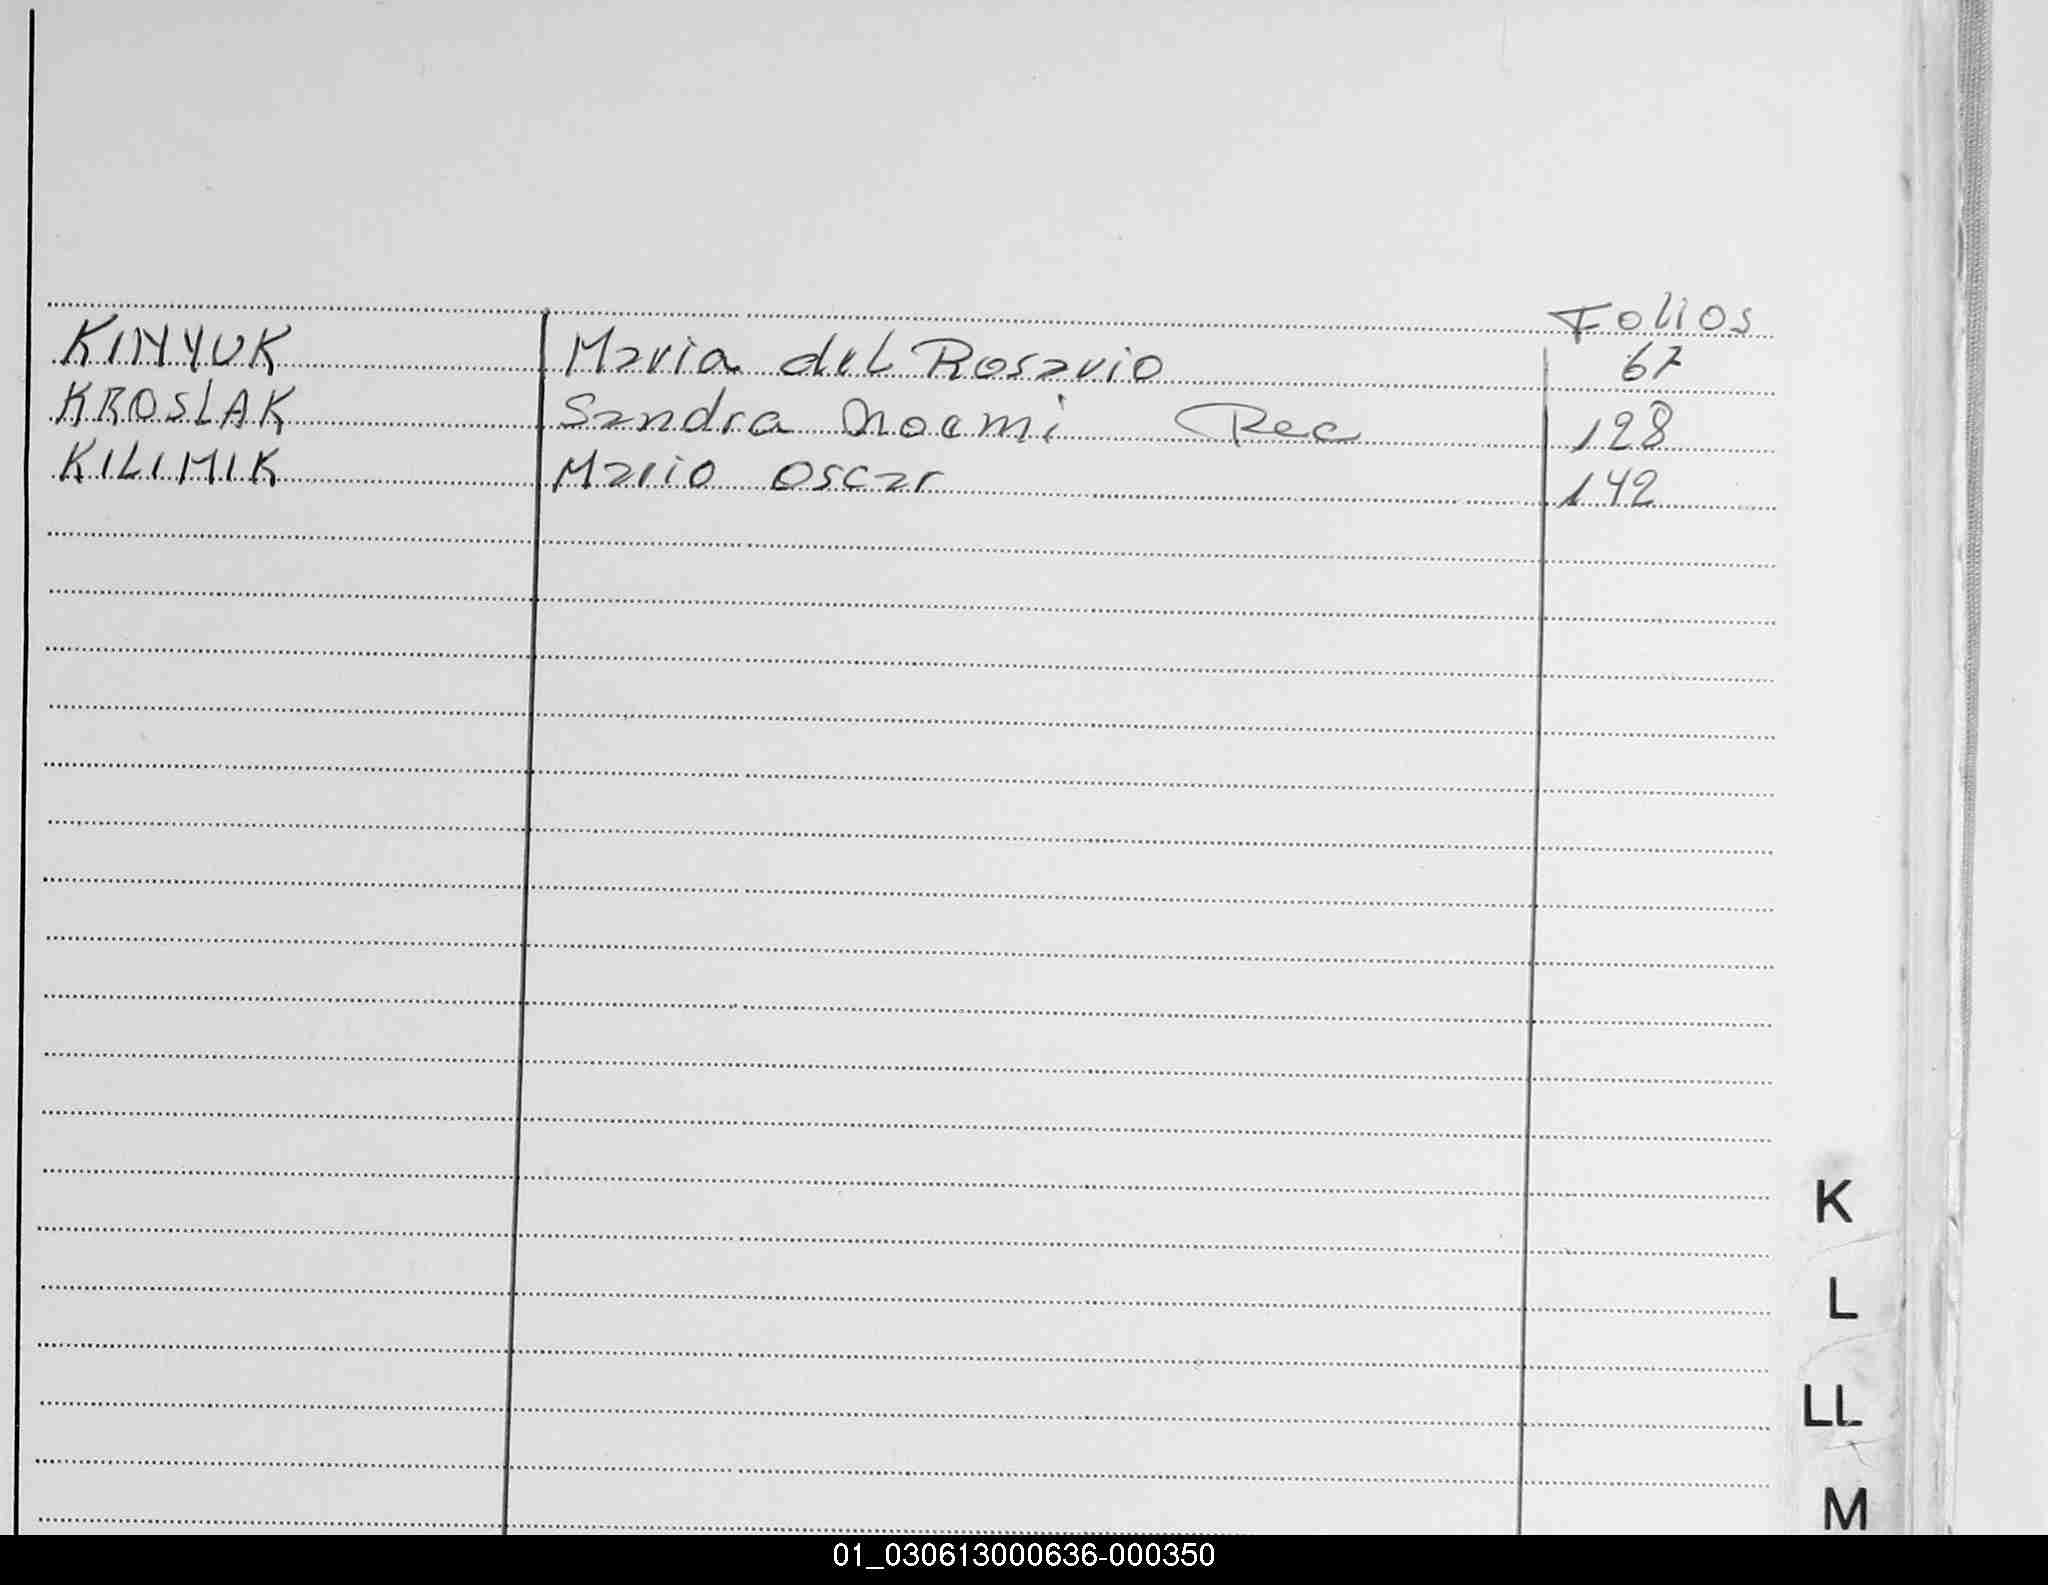 Folios
KINYUK Maria del Rosario 67
KROSLAK Sandra Noemi Rec 128
KILIMIK Mario Oscar 142
K
L
LL
M
01_030613000636-000350